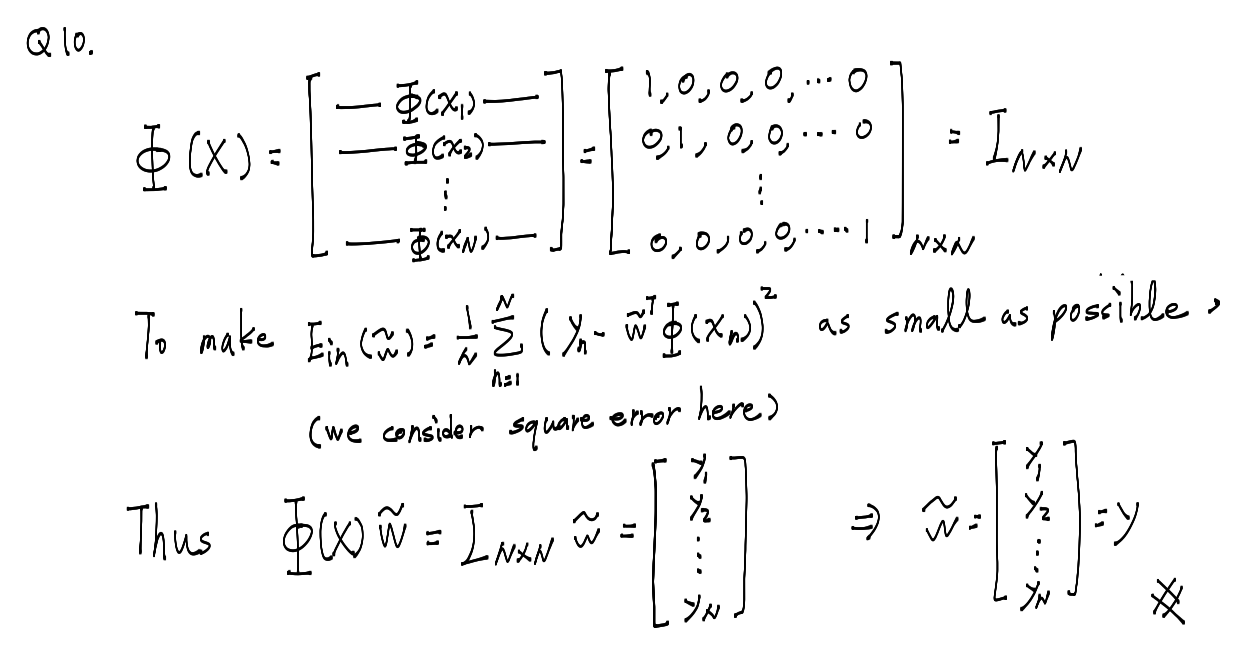 Q10.
Φ(X) = [ — Φ(x₁) — ; — Φ(x₂) — ; ⋮ ; — Φ(x_N) — ] = [ 1,0,0,0,⋯ 0 ; 0,1,0,0,⋯ 0 ; ⋮ ; 0,0,0,0,⋯⋯1 ]_{N×N} = I_{N×N}
To make E_in(w̃) = 1/N ∑_{n=1}^{N} (y_n - w̃ᵀΦ(x_n))² as small as possible,
(we consider square error here)
Thus Φ(X) w̃ = I_{N×N} w̃ = [ y₁ ; y₂ ; ⋮ ; y_N ] ⇒ w̃ = [ y₁ ; y₂ ; ⋮ ; y_N ] = y ※